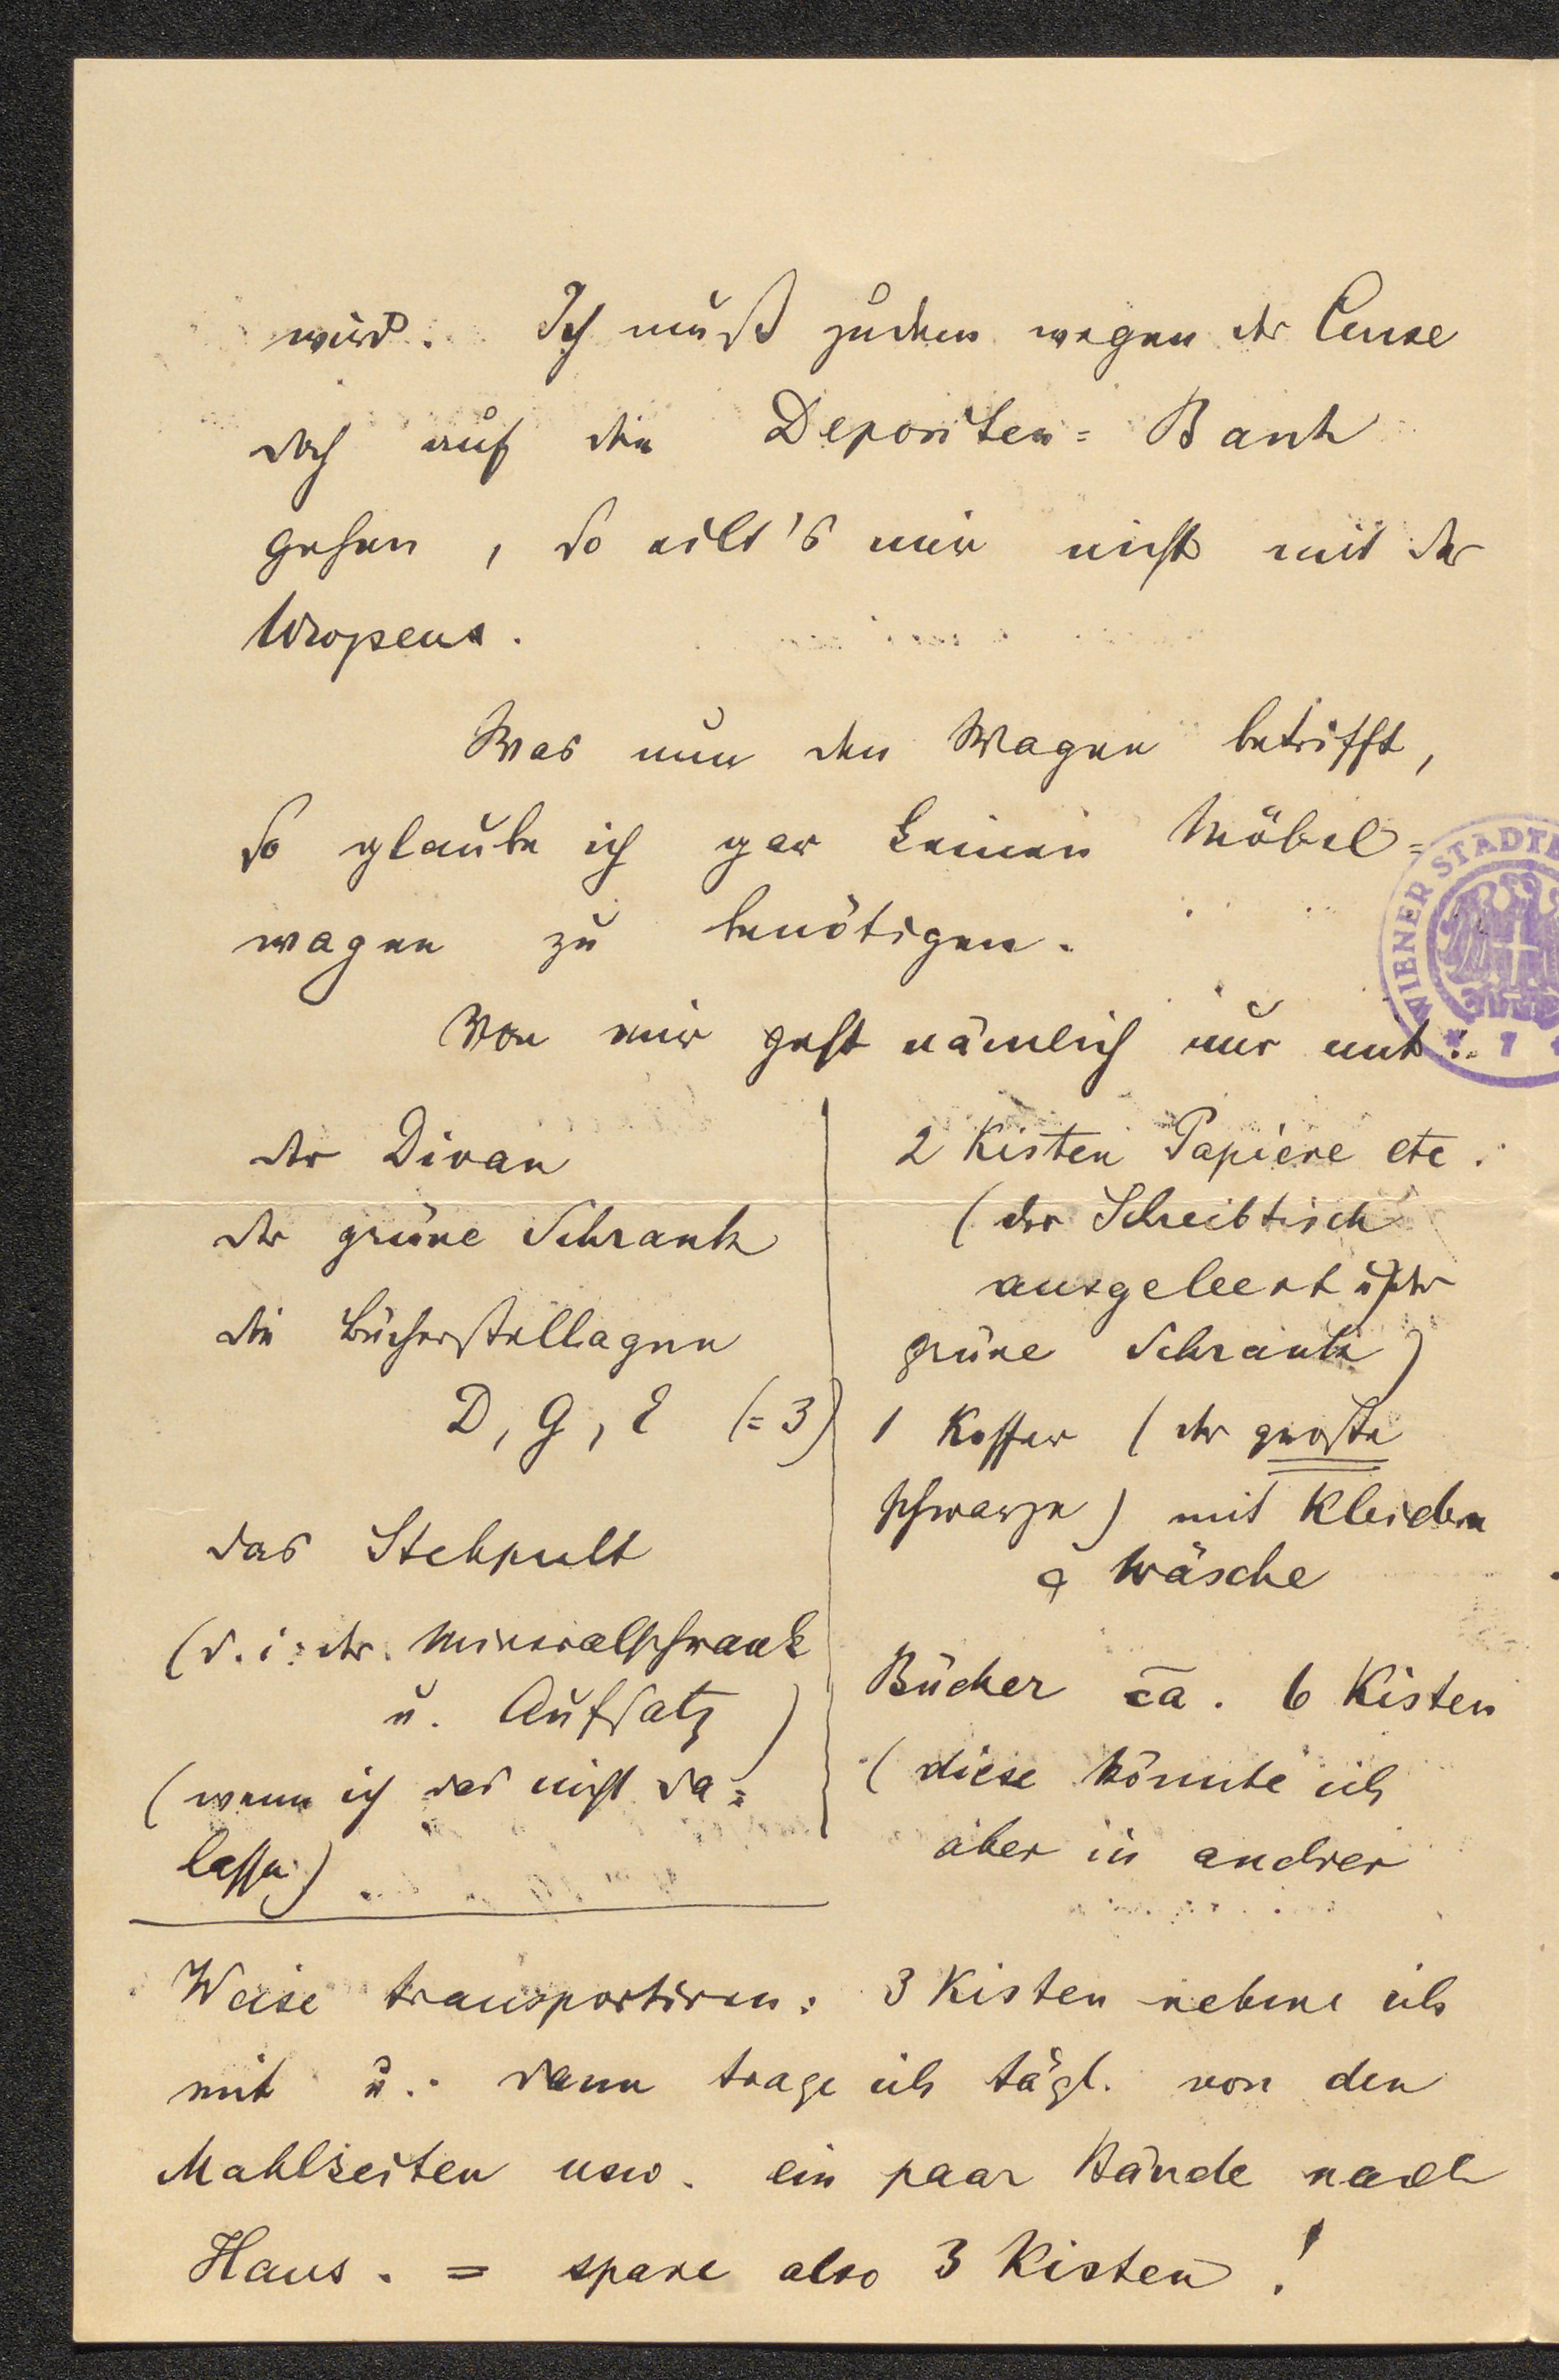 wird. Ich muß zudem wegen der
doch auf die Depositen=Bank
gehen, so eilt's mir nicht mit der

Was nun den Wagen betrifft,
so glaube ich gar keinen Möbel=
wagen zu benötigen.
Von mir geht nämlich nur mit:
der Divan
der grüne Schrank
die Bücherstellagen
D, G, E (=3)
das Stehpult
(d. i. der Mineralschrank
u. Aufsatz)
(wenn ich das nicht da=
lasse)
2 Kisten Papiere etc.
(der Schreibtisch
ausgeleert u. der
grüne Schrank)
1 Koffer (der große
schwarze) mit Kleidern
& Wäsche
Bücher ca. 6 Kisten
(diese könnte ich
aber in andrer
Weise transportiren: 3 Kisten nehme ich
mit u. dann trage ich tägl. von den
Mahlzeiten usw. ein paar Bände nach
Haus. = spare also 3 Kisten!
WIENER STADTB
7